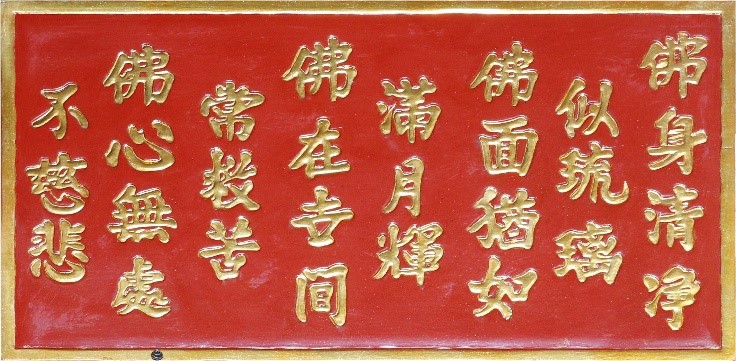 佛身清净
似琉璃
佛面猶如
滿月輝
佛在世间
常救苦
佛心無處
不慈悲